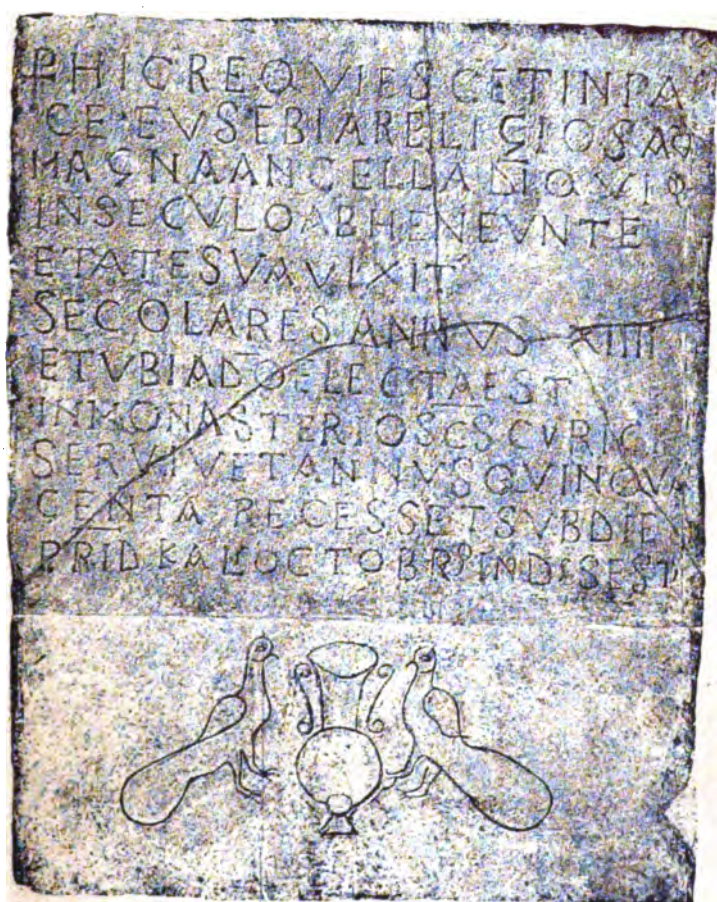 HIC REQVIESCET IN PA
CE EVSEBIA RELIGIOSA
MAGNA ANCELLA DNI QVI
IN SECVLO AB HENEVNTE
ETATE SVA VIXIT
SECOLARES ANNVS XIIII
ET VBI A DO ELECTA EST
IN MONASTERIO SCS CVRICI
SERVIVET ANNVS QVINQVA
GENTA RECESSET SVB DIE
PRID KAL OCTOBRS IND SEST